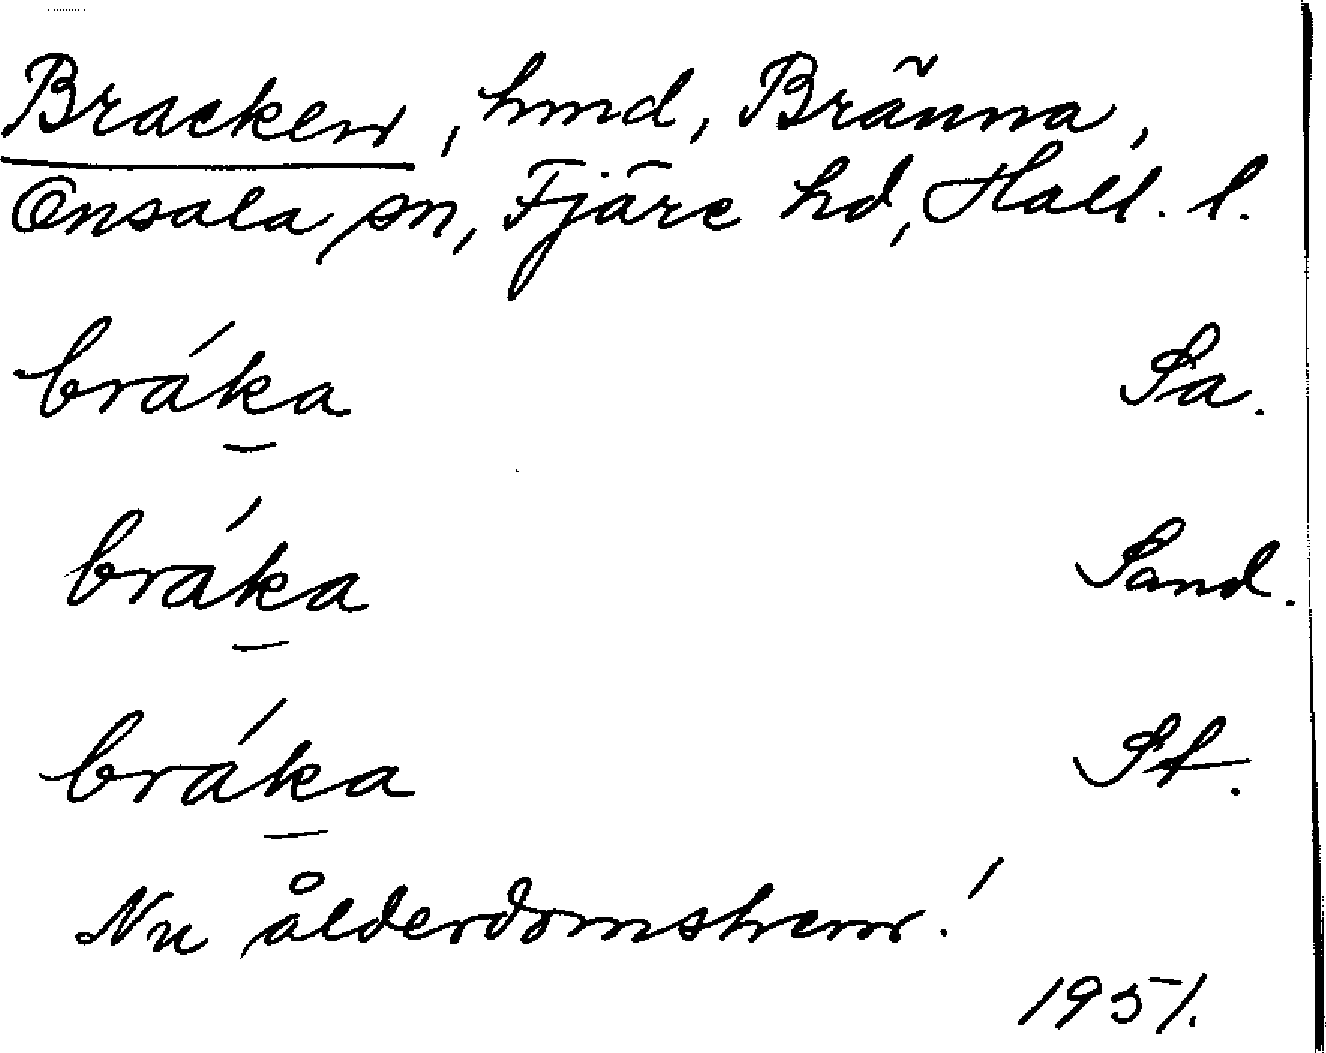 Bracken, hmd, Bränna,
Onsala sn, Fjäre hd, Hall. l.
bráka Sa.
bráka Sand.
bráka St.
Nu ålderdomshem!
1951.